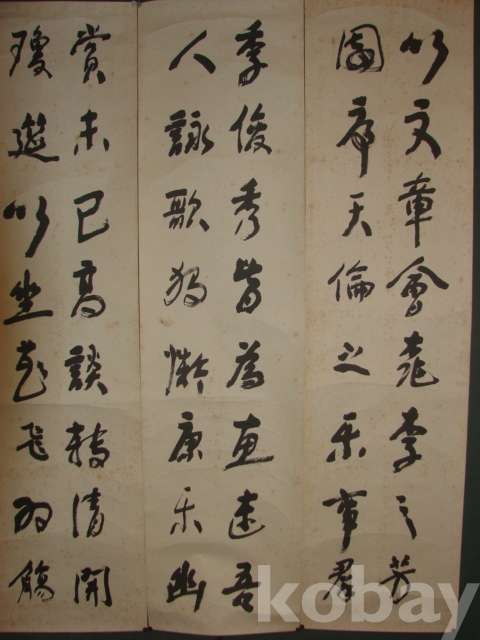 以文章會桃李之芳
園序天倫之樂事羣
季俊秀皆為惠連吾
人詠歌獨慚康樂幽
賞未已高談轉清開
瓊筵以坐花飛羽觴
kobay